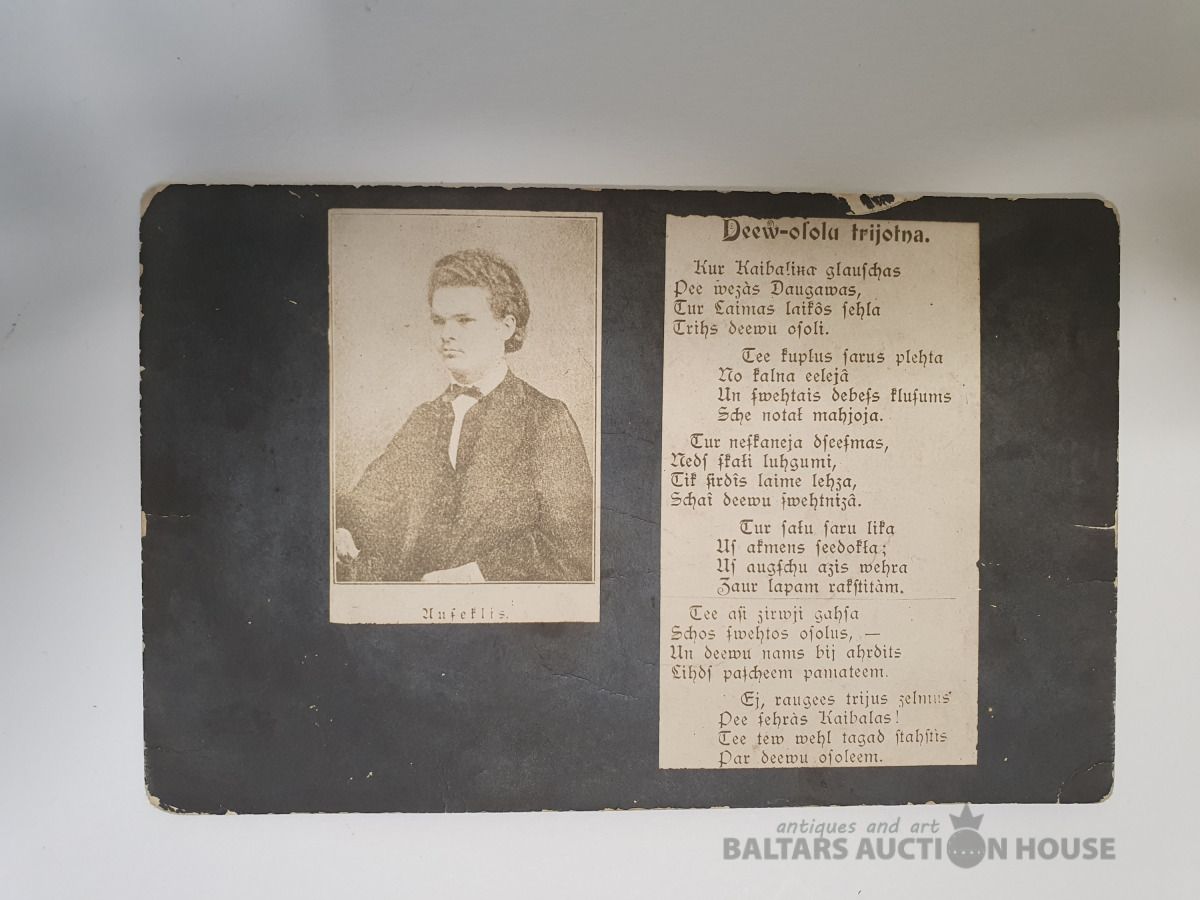 Auſeklis.
Deewſ-oſolu trijotņa.
Kur Kaibaliņa glauſchas
Pee wezàs Daugawas,
Tur Laimas laikôs ſehla
Trihs deewu oſoli.
Tee kuplus ſarus plehta
No kalna eelejâ
Un ſwehtais debeſs kluſums
Sche notał mahjoja.
Tur neſkaneja dſeeſmas,
Nedſ ſkaļi luhgumi,
Tik ſirdîs laime lehza,
Schaî deewu ſwehtnizâ.
Tur ſaļu ſaru lika
Uſ akmens ſeedokļa;
Uſ augſchu azis wehra
Zaur lapam rakſtitàm.
Tee aſi zirwji gahſa
Schos ſwehtos oſolus, —
Un deewu nams bij ahrdits
Lihdſ paſcheem pamateem.
Ej, raugees trijus zelmus
Pee ſehràs Kaibalas!
Tee tew wehl tagad ſtahſtis
Par deewu oſoleem.
antiques and art
BALTARS AUCTION HOUSE